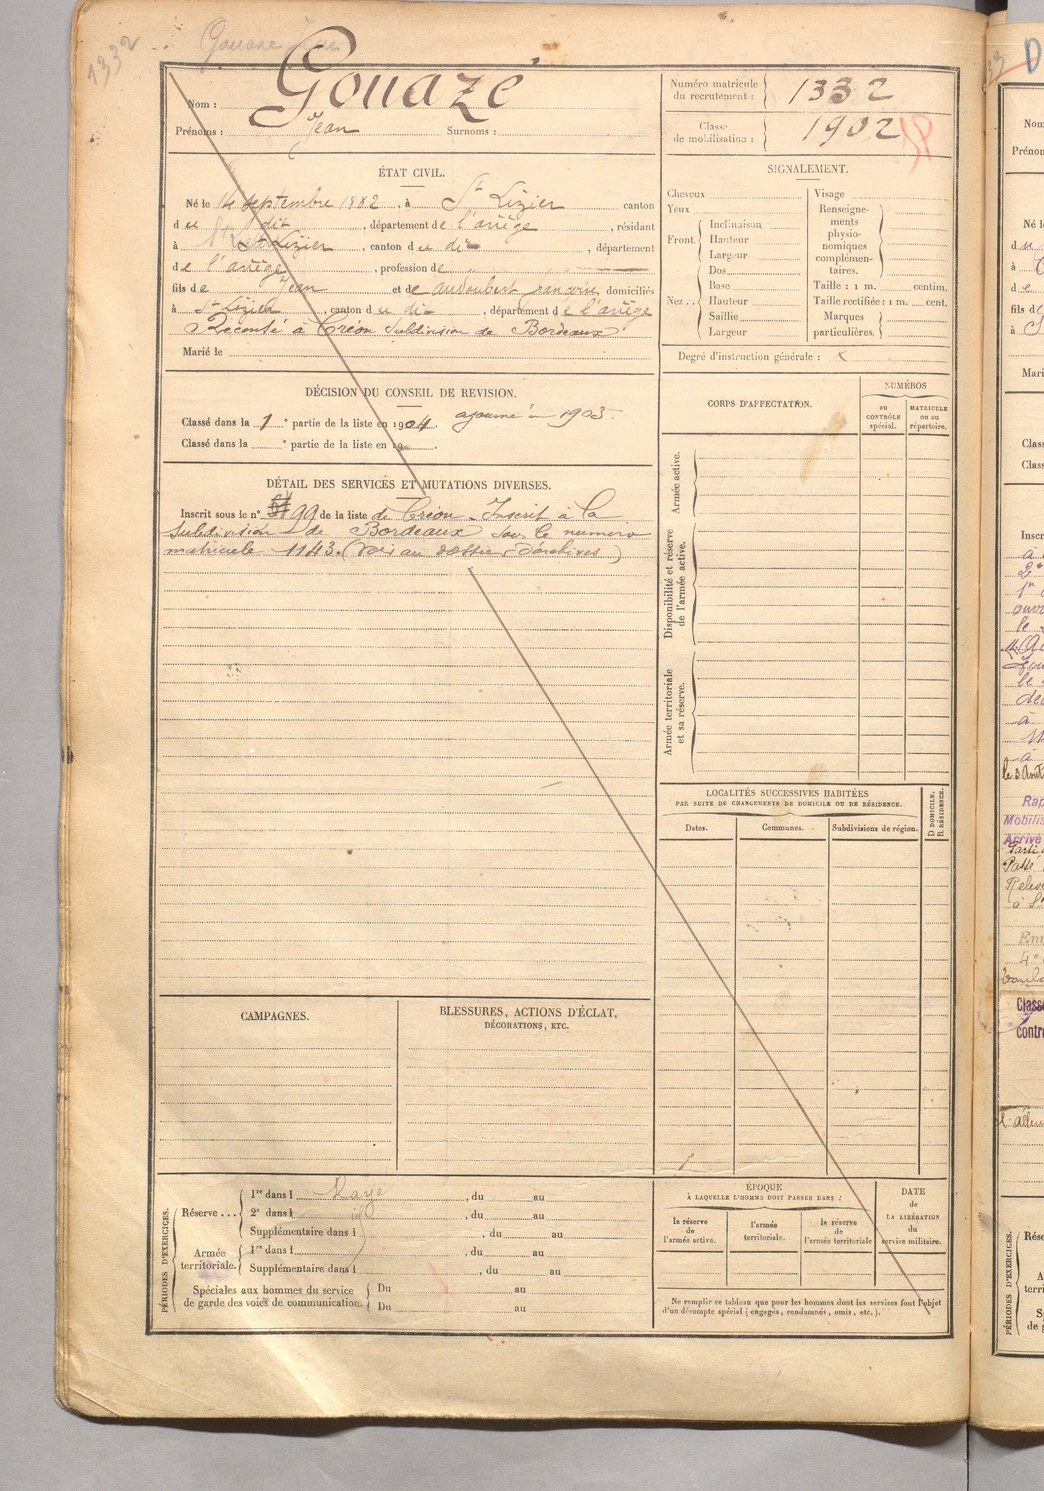 1332
Gouaze Jean
Nom : Gouazé
Prénoms : Jean Surnoms :
Numéro matricule du recrutement : 1332
Classe de mobilisation : 1902
ÉTAT CIVIL.
Né le 14 septembre 1882, à St Lizier canton
du dit, département de l'ariège, résidant
à St Lizier, canton du dit, département
de l'ariège, profession de
fils de Jean et de audoubert françoise, domiciliés
à St Lizier, canton du dit, département de l'ariège
Recensé à Créon subdivision de Bordeaux
Marié le
SIGNALEMENT.
Cheveux
Yeux
Front. Inclinaison
Hauteur
Largeur
Nez .. Dos
Base
Hauteur
Saillie
Largeur
Visage
Renseignements physionomiques complémentaires.
Taille : 1 m. centim.
Taille rectifiée : 1 m. cent.
Marques particulières.
Degré d'instruction générale : x
DÉCISION DU CONSEIL DE REVISION.
Classé dans la 1e partie de la liste en 1904. ajourné in 1903.
Classé dans la e partie de la liste en 19
DÉTAIL DES SERVICES ET MUTATIONS DIVERSES.
Inscrit sous le n° 99 de la liste de Créon. Inscrit à la
subdivision de Bordeaux sous le numéro
matricule 1143. (voir au dossier d'archives)
CORPS D'AFFECTATION.
NUMÉROS
au CONTRÔLE spécial.
MATRICULE ou au répertoire.
Armée active.
Disponibilité et réserve de l'armée active.
Armée territoriale et sa réserve.
LOCALITÉS SUCCESSIVES HABITÉES
PAR SUITE DE CHANGEMENTS DE DOMICILE OU DE RÉSIDENCE.
Dates.
Communes.
Subdivisions de région.
D DOMICILE.
R RÉSIDENCE.
CAMPAGNES.
BLESSURES, ACTIONS D'ÉCLAT,
DÉCORATIONS, ETC.
PÉRIODES D'EXERCICES.
Réserve ...
1re dans l Rayé, du au
2e dans l, du au
Supplémentaire dans l, du au
Armée territoriale.
1re dans l, du au
Supplémentaire dans l, du au
Spéciales aux hommes du service
de garde des voies de communication.
Du au
Du au
ÉPOQUE
À LAQUELLE L'HOMME DOIT PASSER DANS :
la réserve de l'armée active.
l'armée territoriale.
la réserve de l'armée territoriale
DATE
de
LA LIBÉRATION
du
service militaire.
Ne remplir ce tableau que pour les hommes dont les services font l'objet
d'un décompte spécial (engagés, condamnés, omis, etc.).